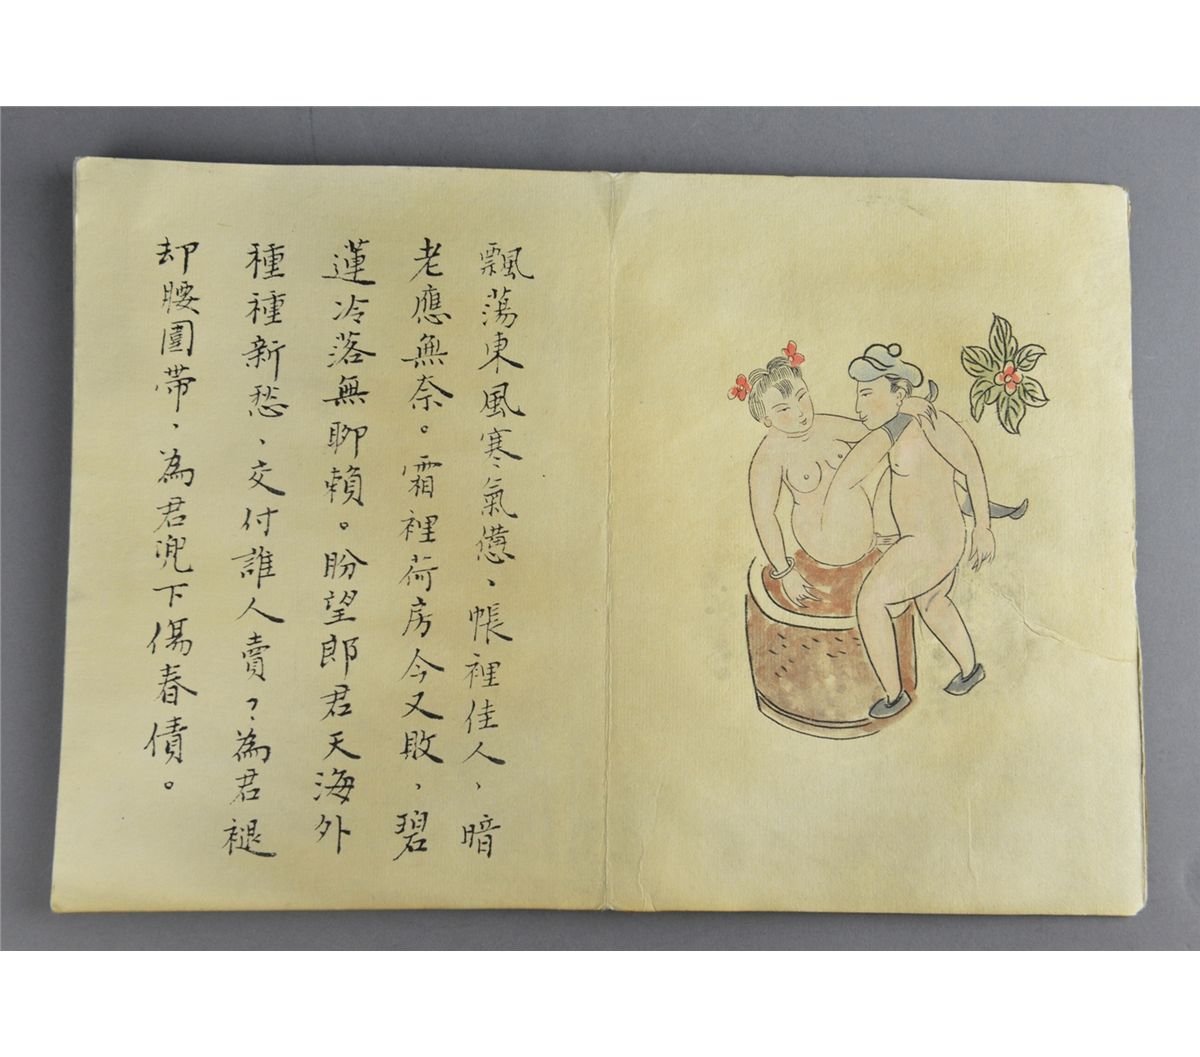 飄蕩東風寒氣憊、帳裡佳人、暗
老應無奈。霜裡荷房今又敗、碧
蓮冷落無聊賴。盼望郎君天海外
種種新愁、交付誰人賣？為君褪
却腰圍帶、為君兜下傷春債。